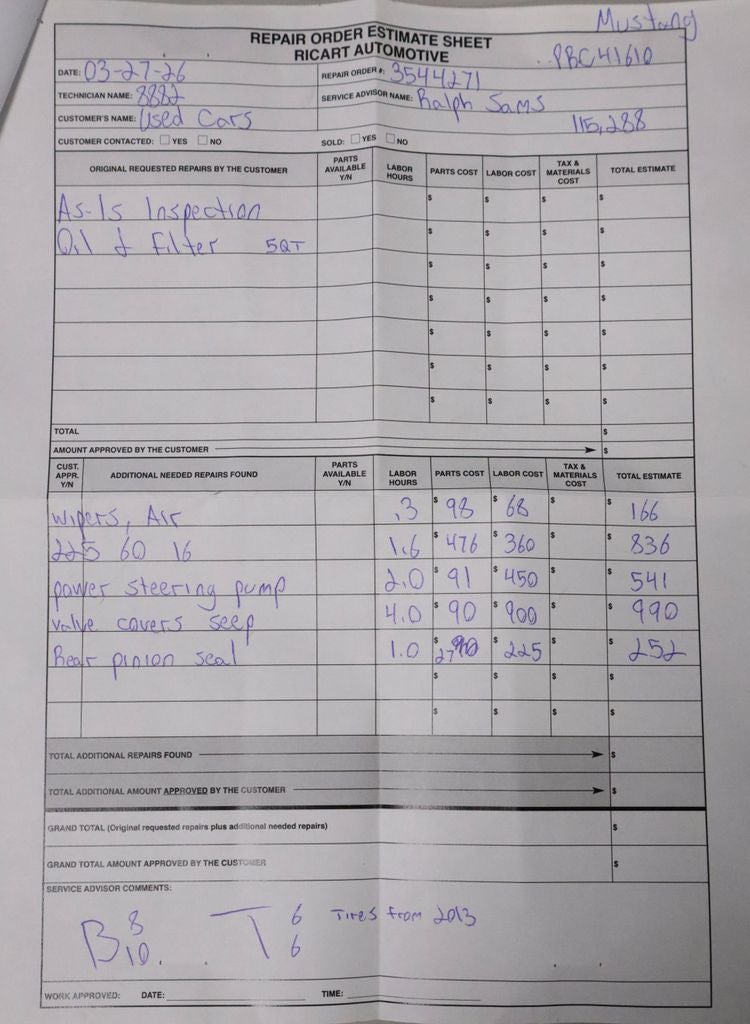 Mustang
REPAIR ORDER ESTIMATE SHEET
RICART AUTOMOTIVE
PBC41610
DATE: 03-27-26
REPAIR ORDER #: 3544271
TECHNICIAN NAME: 8882
SERVICE ADVISOR NAME: Ralph Sams
CUSTOMER'S NAME: Used Cars
115,288
CUSTOMER CONTACTED: YES NO SOLD: YES NO
ORIGINAL REQUESTED REPAIRS BY THE CUSTOMER PARTS AVAILABLE Y/N LABOR HOURS PARTS COST LABOR COST TAX & MATERIALS COST TOTAL ESTIMATE
As-Is Inspection $ $ $ $
Oil & Filter 5QT $ $ $ $
$ $ $ $
$ $ $ $
$ $ $ $
$ $ $ $
$ $ $ $
TOTAL $
AMOUNT APPROVED BY THE CUSTOMER $
CUST. APPR. Y/N ADDITIONAL NEEDED REPAIRS FOUND PARTS AVAILABLE Y/N LABOR HOURS PARTS COST LABOR COST TAX & MATERIALS COST TOTAL ESTIMATE
wipers, Air .3 $ 98 $ 68 $ $ 166
225 60 16 1.6 $ 476 $ 360 $ $ 836
power steering pump 2.0 $ 91 $ 450 $ $ 541
valve covers seep 4.0 $ 90 $ 900 $ $ 990
Rear pinion seal 1.0 $ 27 $ 225 $ $ 252
$ $ $ $
$ $ $ $
TOTAL ADDITIONAL REPAIRS FOUND $
TOTAL ADDITIONAL AMOUNT APPROVED BY THE CUSTOMER $
GRAND TOTAL (Original requested repairs plus additional needed repairs) $
GRAND TOTAL AMOUNT APPROVED BY THE CUSTOMER $
SERVICE ADVISOR COMMENTS:
B 8 10. T 6 6 Tires from 2013
WORK APPROVED: DATE: TIME: